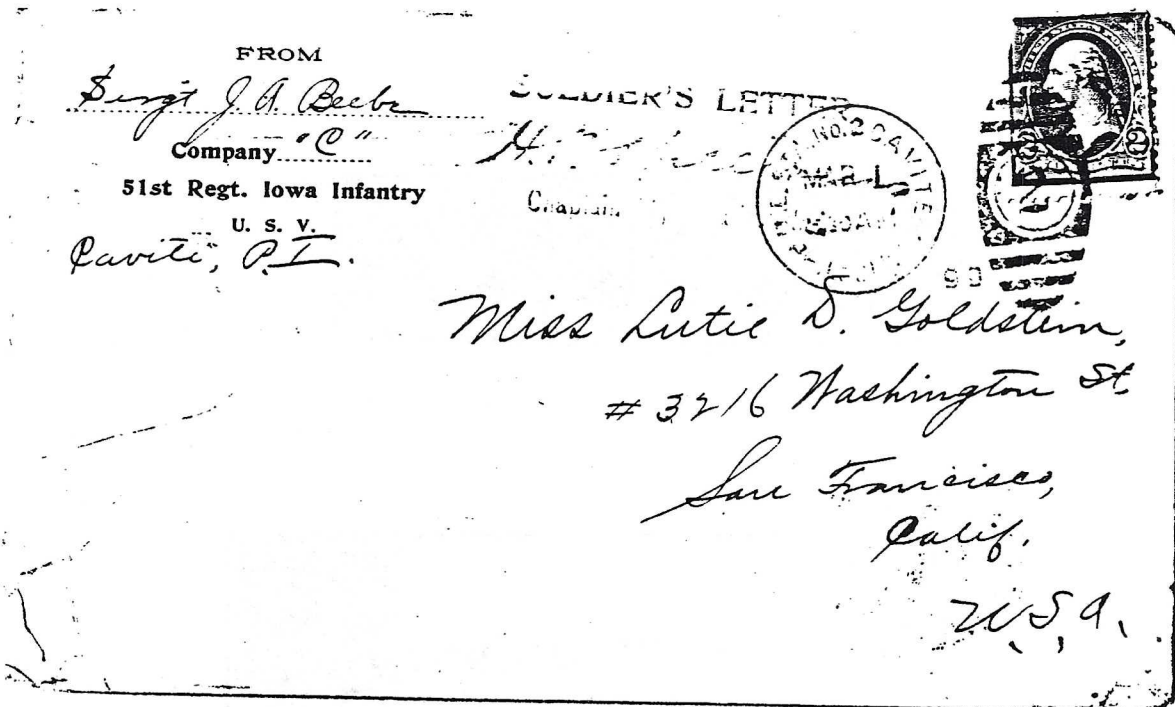 FROM
Sergt J. A. Beebe
Company "C"
51st Regt. Iowa Infantry
U. S. V.
Cavite, P.I.
SOLDIER'S LETTER
Chaplain
No. 2 CAVITE
MAR 1
2
Miss Lutie D. Goldstein,
# 3216 Washington St.
San Francisco,
Calif.
U.S.A.